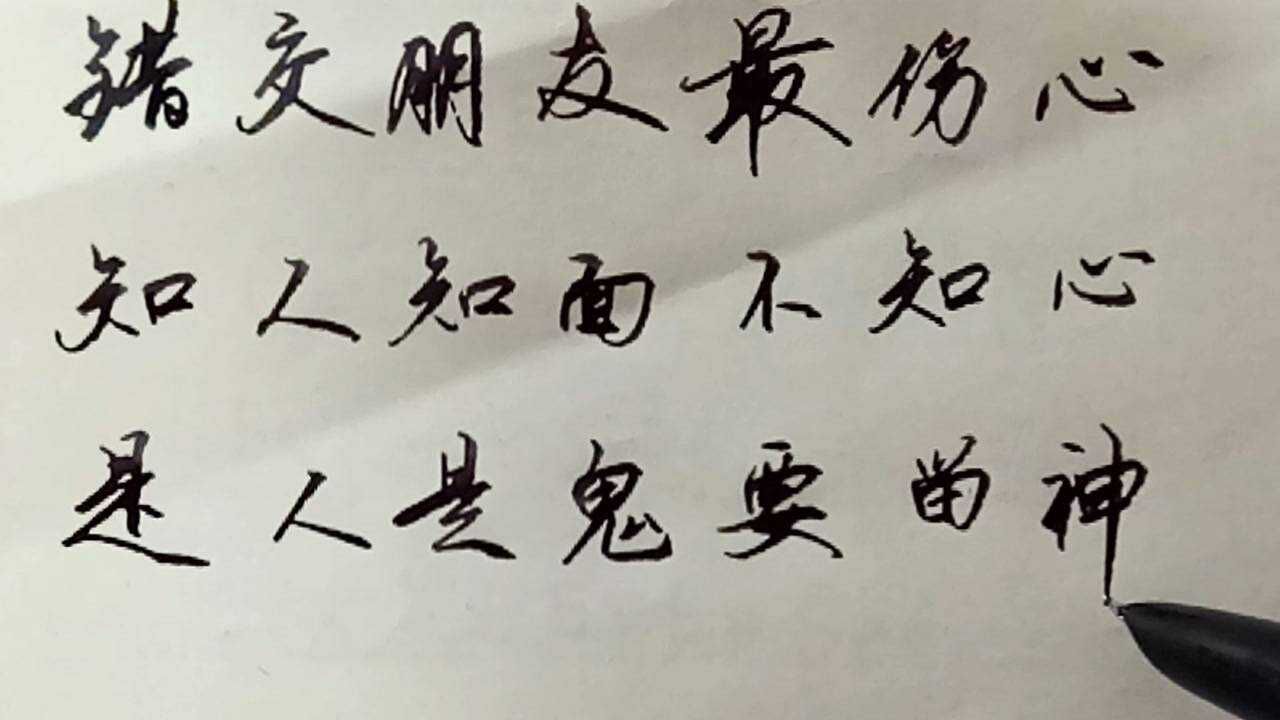 错交朋友最伤心
知人知面不知心
是人是鬼要留神